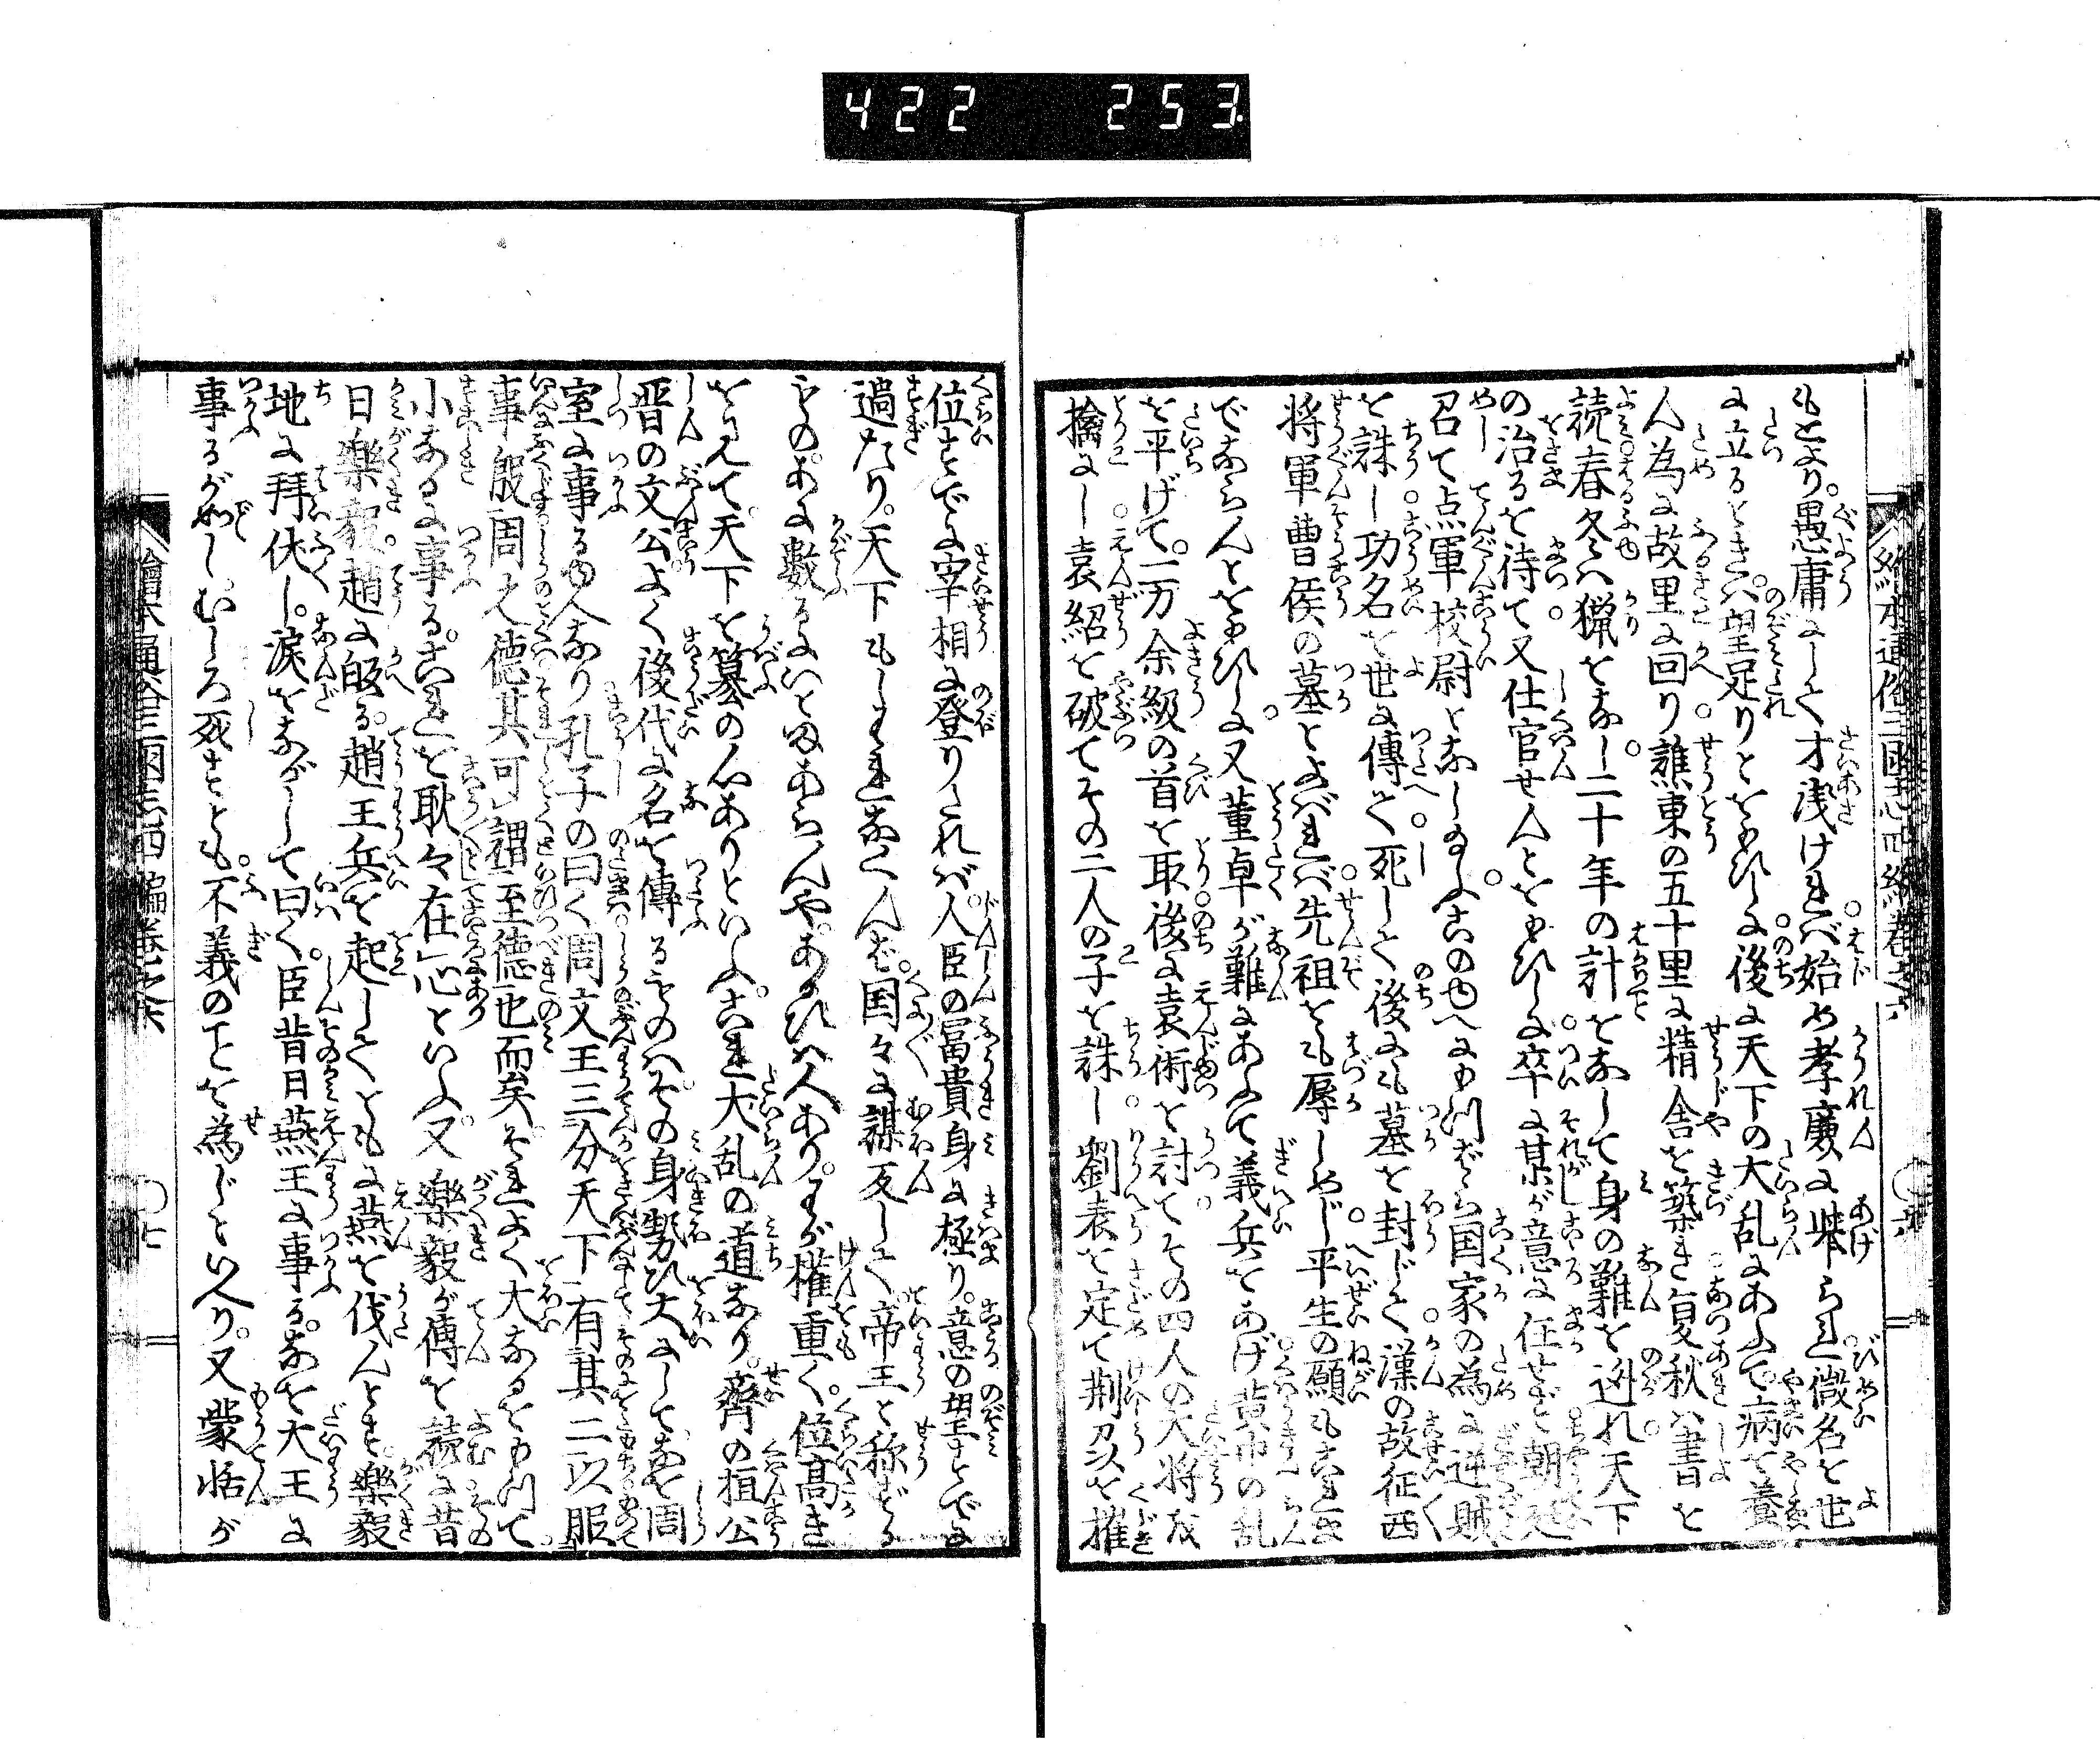 422 253
絵本通俗三国志四編巻之六 〇六
もとより。愚庸にして才浅ければ始め孝廉に挙られ。微名を世
に立るとき。ハ望足りとおもひしに後に天下の大乱にあふて。病を養
ん為に故里に回り譙東の五十里に精舎を築き夏秋ハ書を
読春冬ハ猟をなし。二十年の計をなして身の難を遁れ天下
の治るを待て又仕官せんとおもひしに卒に某が意に任せず朝廷
召て点軍校尉となし給ふ。このゆへにもつぱら国家の為に逆賊
を誅し功名を世に傳へて死して後にも墓を封じて漢の故征西
将軍曹侯の墓とよばれバ先祖をも辱しめじ平生の願もこれま
でならんとおもひしに又董卓が難にあふて義兵をあげ黄巾の乱
を平げて。一万余級の首を取後に袁術を討てその四人の大将を
擒にし袁紹を破てその二人の子を誅し劉表を定て荆州を摧
位すでに宰相に登りされバ人臣の冨貴身に極り。意の望すでに
過たり。天下もしわれなくんば。国々に謀反して帝王と称ずる
ものあに数るにいとまあらんや。あるひハ人あり。わが権重く。位高き
を見て。天下を簒の心ありといふ。これ大乱の道なり。齊の桓公
晋の文公よく後代に名を傳るものハ。その身勢ひ大にしてなを周
室に事るゆへなり孔子の曰く周文王三分天下有其二以服
事殷周之徳其可謂至徳也而矣。それよく大なるをもつて
小なるに事る。これを耿々在心といふ。又樂毅が傳を読に昔
日樂毅趙に皈る。趙王兵を起してともに燕を伐んとす。樂毅
地に拝伏し。涙をながして曰く。臣昔日燕王に事る。なを大王に
事るが如し。むしろ死すとも。不義のことを為じといへり。又蒙恬が
繪本通俗三国志四編巻之六 〇七